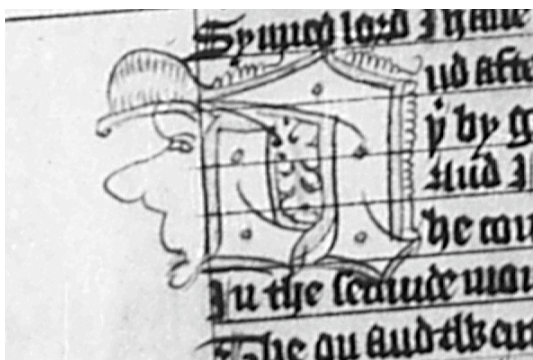 Synned lord I haue
nd afte
ẏ by g
And I
he cou
In the secunde mau
The